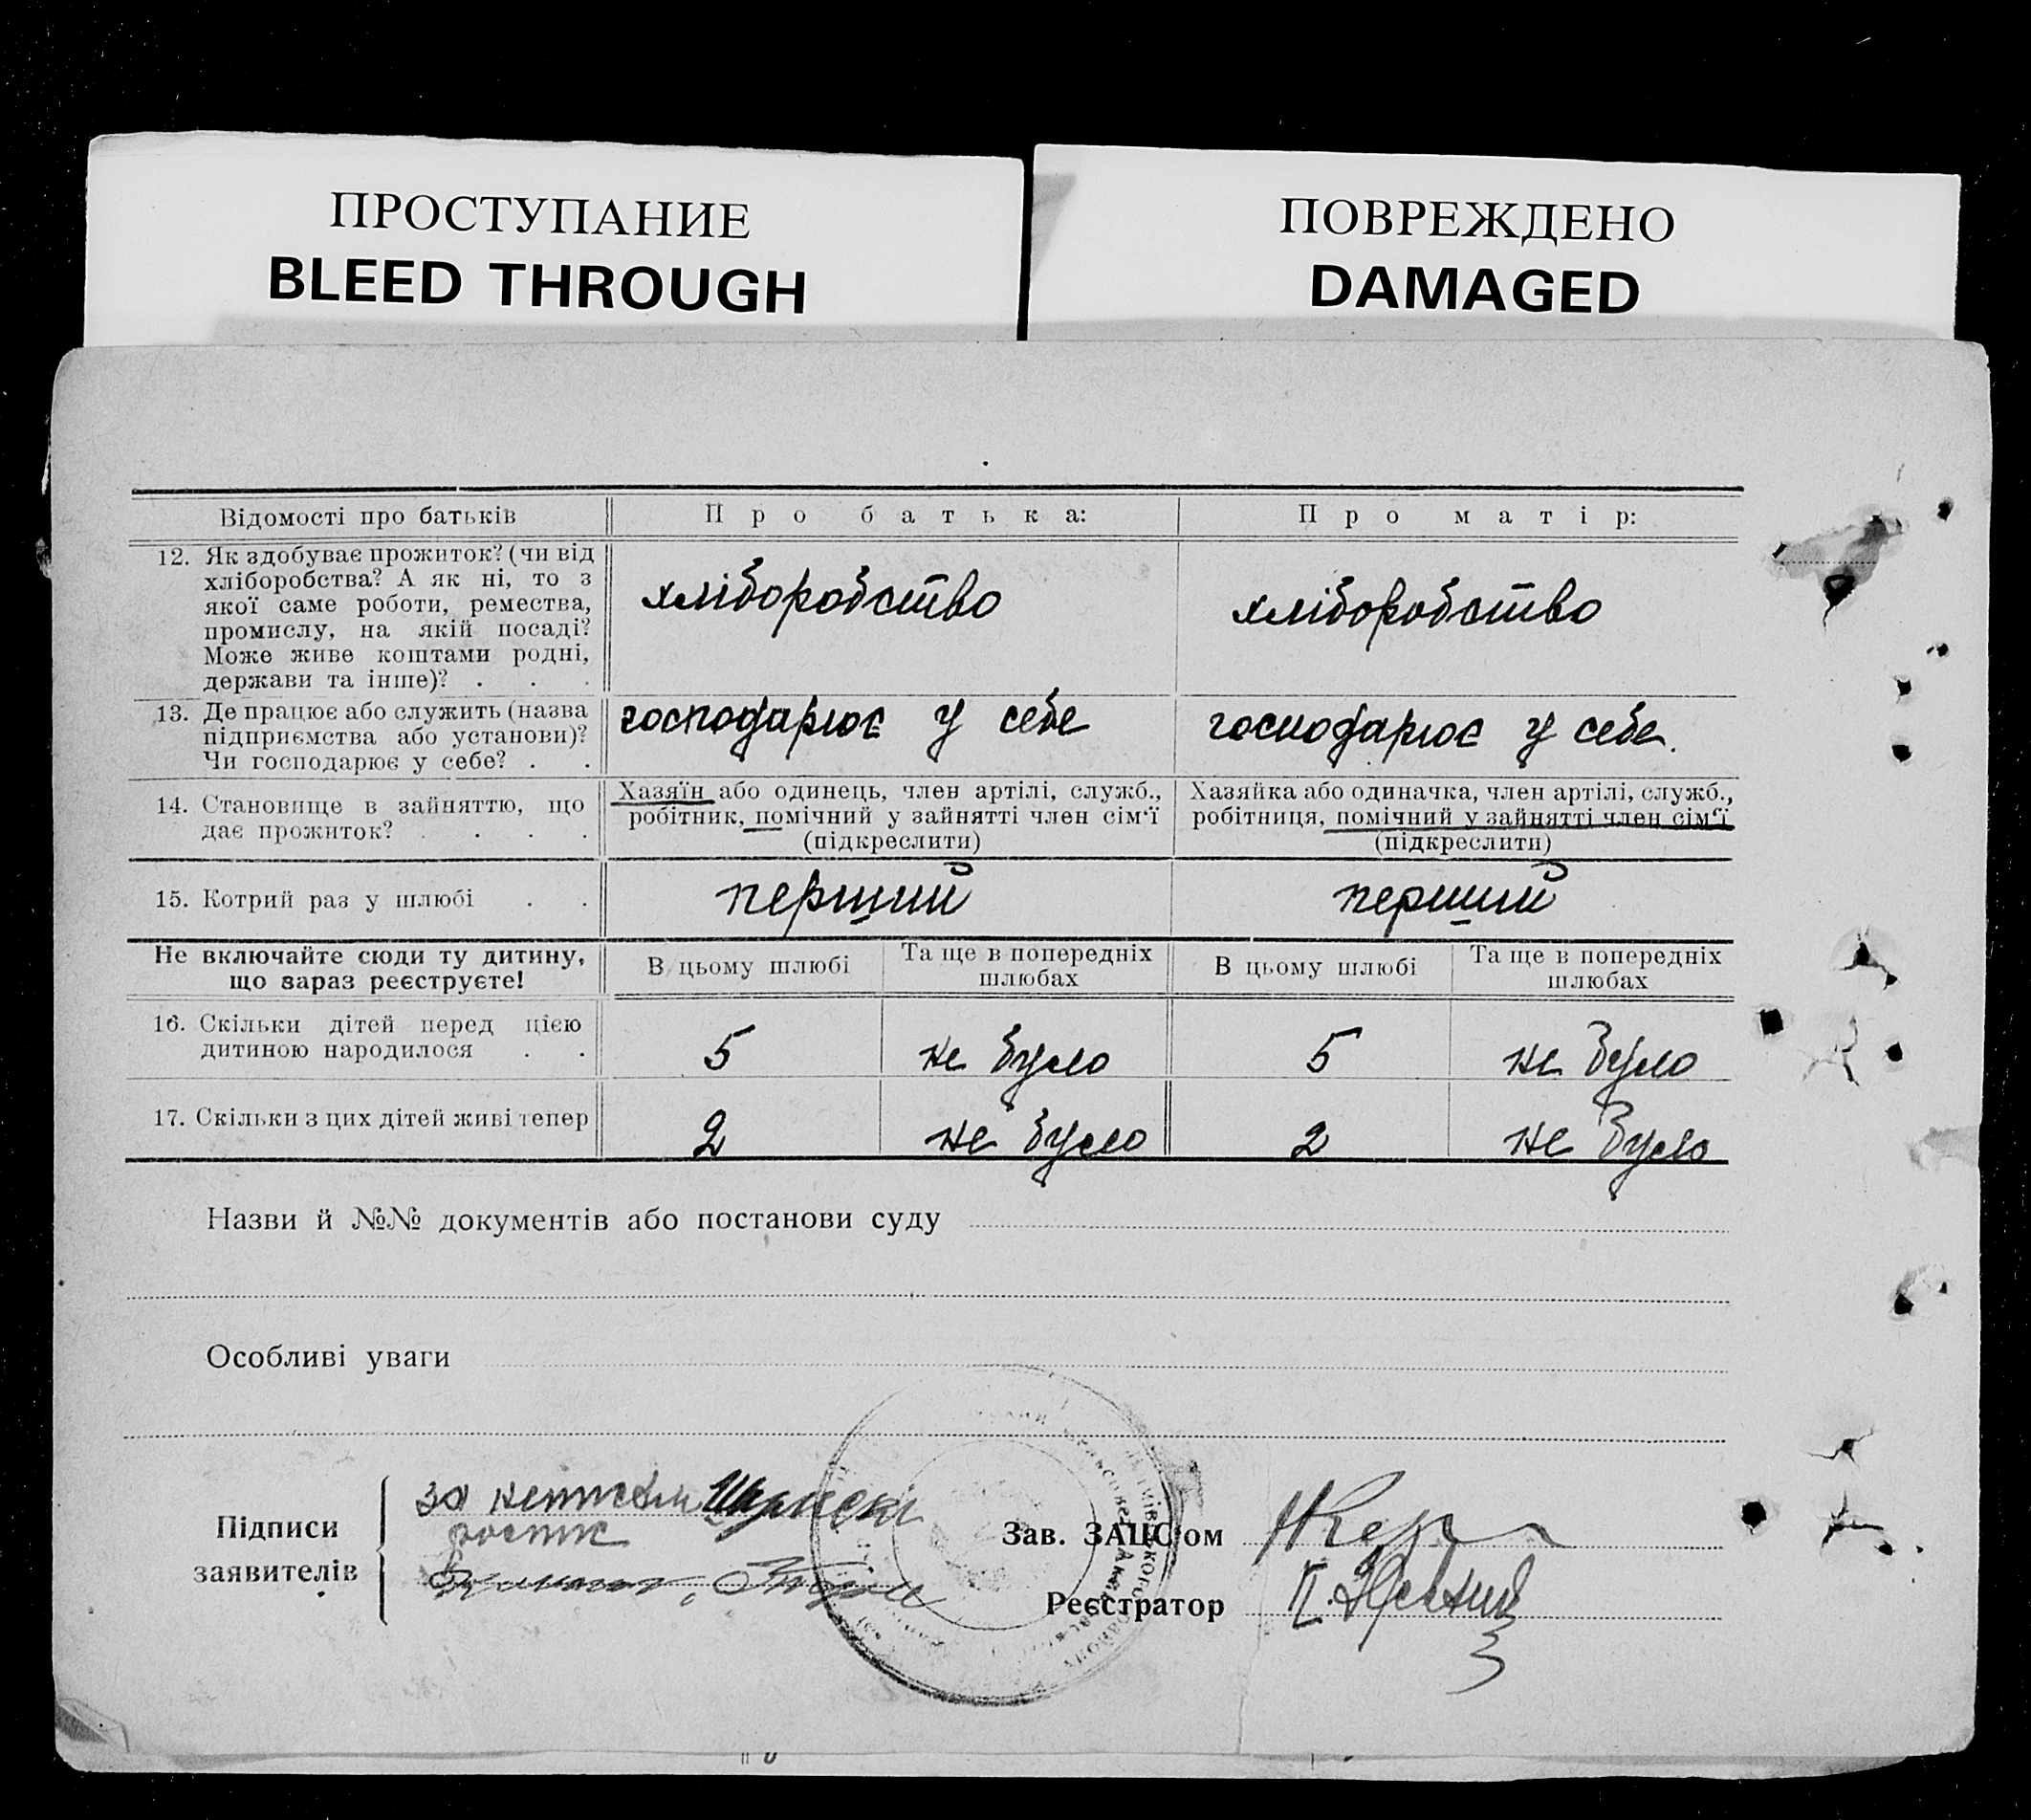 ПРОСТУПАНИЕ
BLEED THROUGH
ПОВРЕЖДЕНО
DAMAGED
Відомості про батьків
Про батька:
Про матір:
12. Як здобуває прожиток? (чи від
хліборобства? А як ні, то з
якої саме роботи, ремества,
промислу, на якій посаді?
Може живе коштами родні,
держави та інше)? . . .
хліборобство
хліборобство
13. Де працює або служить (назва
підприємства або установи)?
Чи господарює у себе? . .
господарює у себе
господарює у себе.
14. Становище в зайняттю, що
дає прожиток? . . . .
Хазяїн або одинець, член артілі, служб.,
робітник, помічний у зайнятті член сім'ї
(підкреслити)
Хазяйка або одиначка, член артілі, служб.,
робітниця, помічний у зайнятті член сім'ї
(підкреслити)
15. Котрий раз у шлюбі . .
перший
перший
Не включайте сюди ту дитину,
що зараз реєструєте!
В цьому шлюбі
Та ще в попередніх
шлюбах
В цьому шлюбі
Та ще в попередніх
шлюбах
16. Скільки дітей перед цією
дитиною народилося . .
5
не було
5
не було
17. Скільки з цих дітей живі тепер
2
не було
2
не було
Назви й №№ документів або постанови суду
Особливі уваги
Підписи
заявителів
за
Зав. ЗАЦСом
Реєстратор